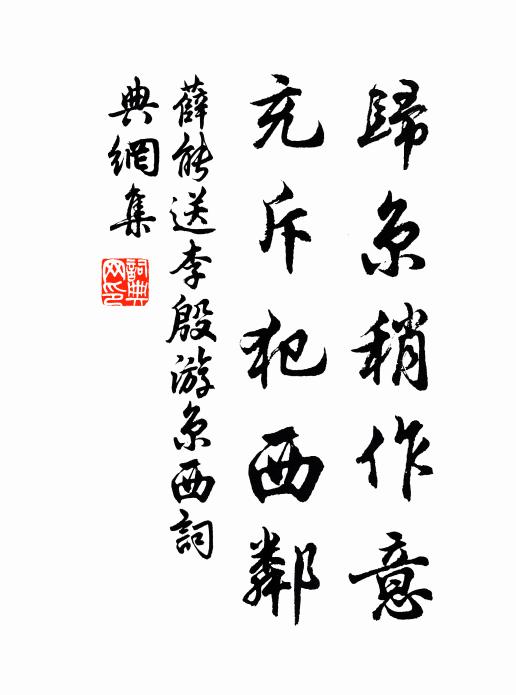 歸京稍作意
充斥犯西鄰
薛能送李殷游京西詞
典網集
詞典
网印